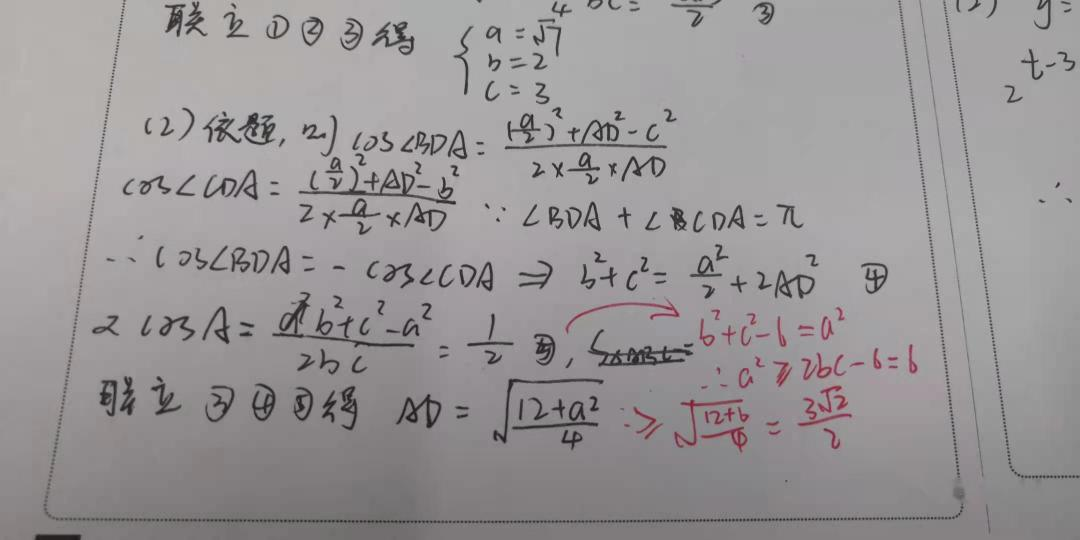 4 bc = 2 ③
联立①②③得 { a = √7
b = 2
c = 3
(2) 依题, 则 cos∠BDA = ((a/2)² + AD² - c²)/(2 × a/2 × AD)
cos∠CDA = ((a/2)² + AD² - b²)/(2 × a/2 × AD) ∵ ∠BDA + ∠CDA = π
∴ cos∠BDA = - cos∠CDA ⇒ b² + c² = a²/2 + 2AD² ④
又 cos A = (b² + c² - a²)/2bc = 1/2 ⑤,
b² + c² - 6 = a²
∴ a² ≥ 2bc - 6 = 6
联立③④⑤得 AD = √((12 + a²)/4) ∴ ≥ √((12 + 6)/4) = 3√2/2
(2) y =
2^(t-3
∴